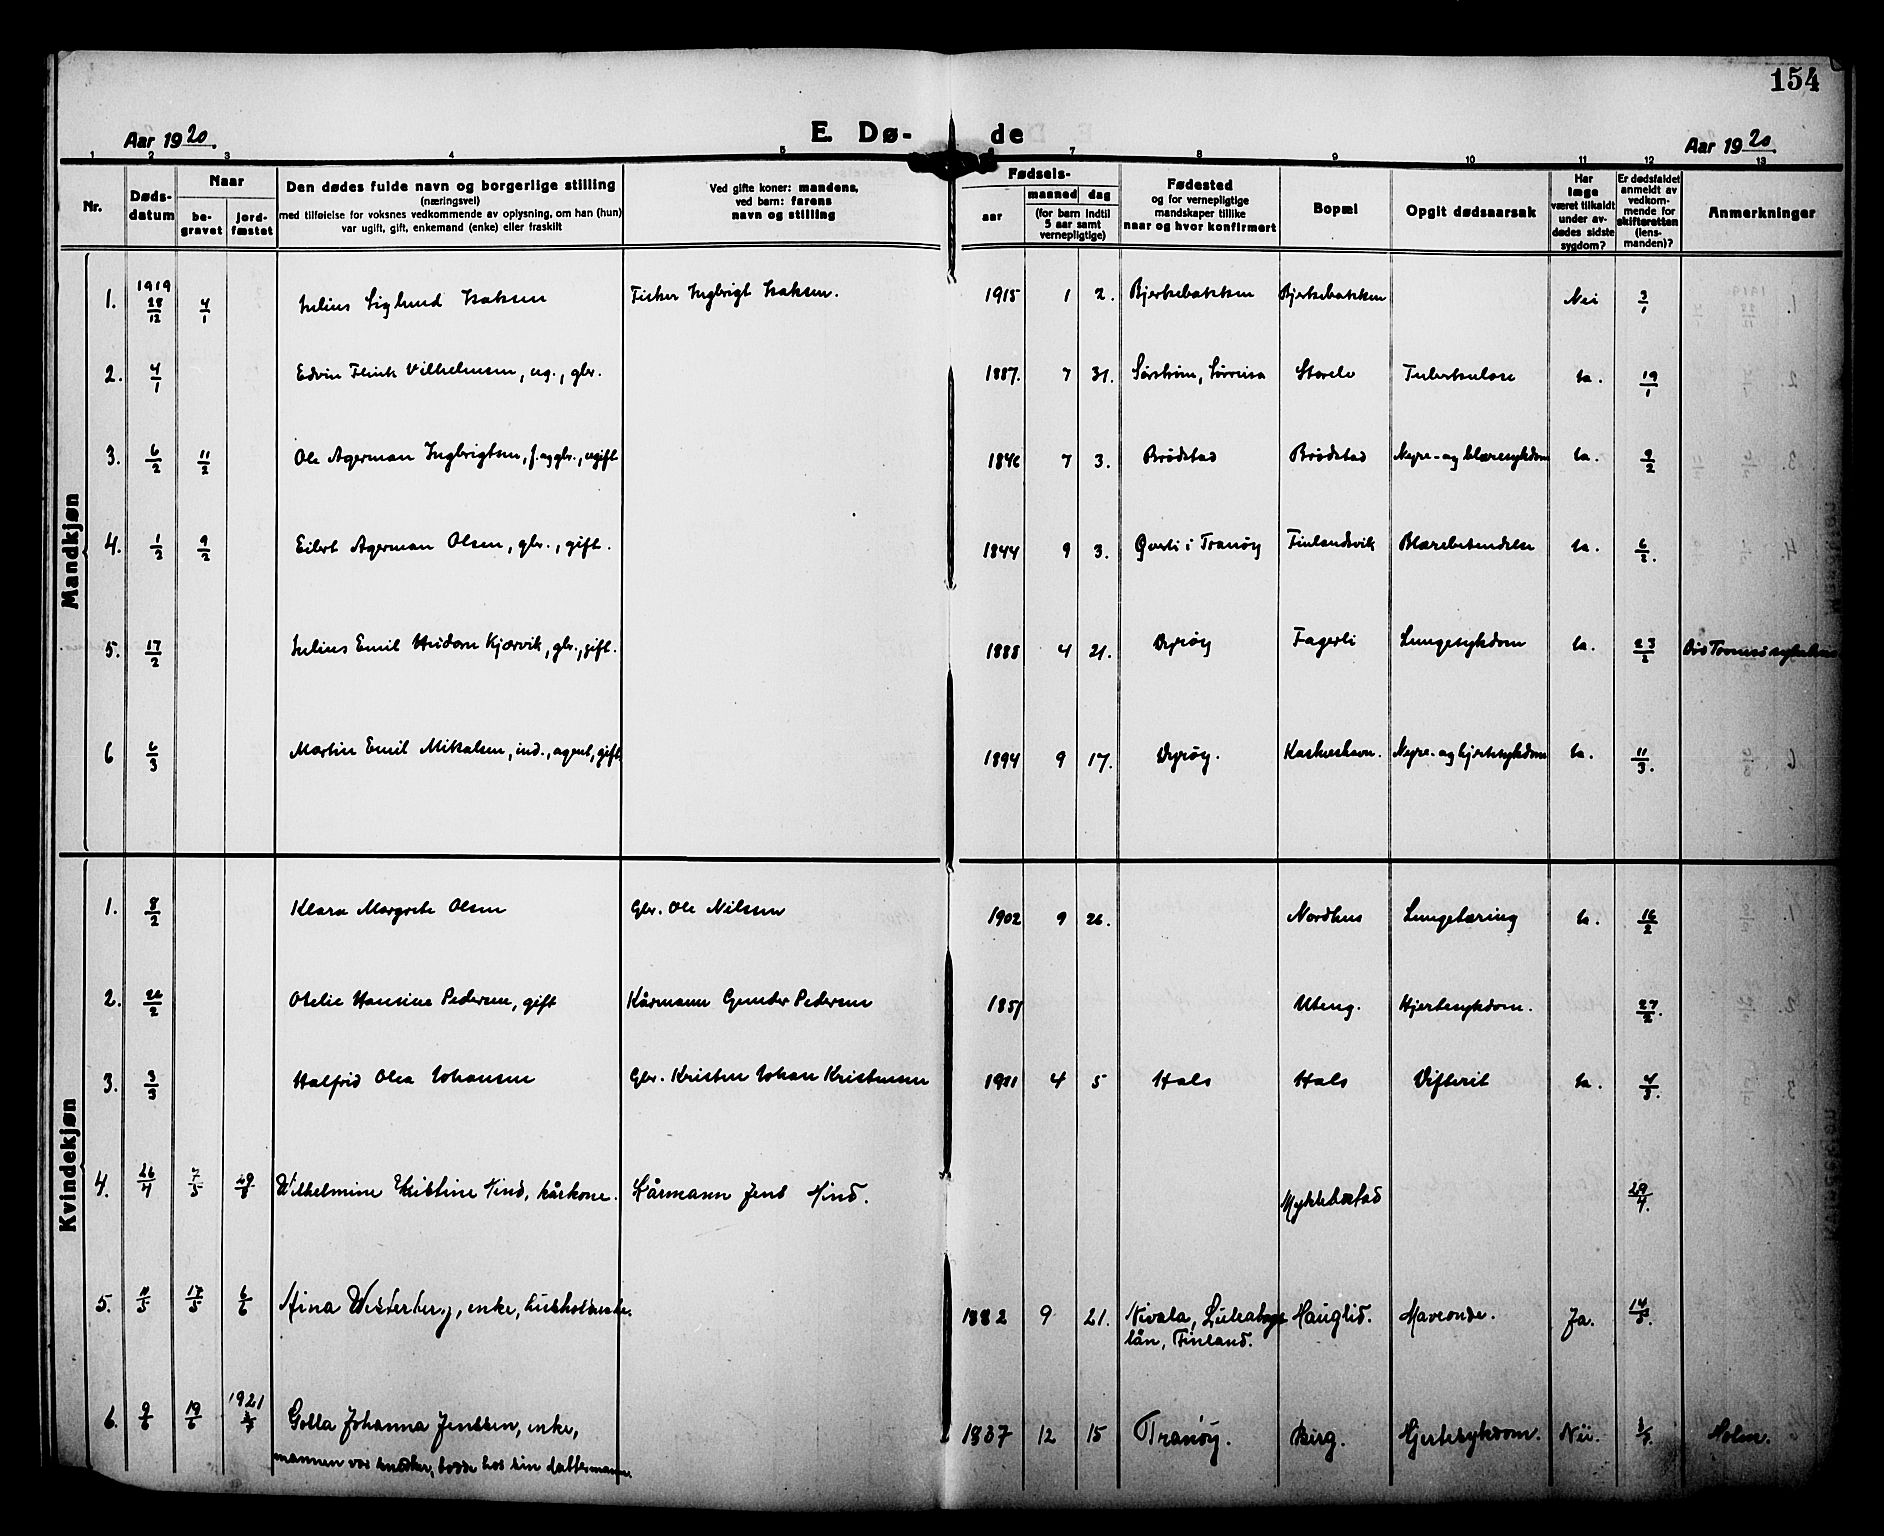 154
Aar 1920.
E. Dø-
de
Aar 1920.
1 2 3 4 5 7 8 9 10 11 12 13
Nr.
Døds-
datum
Naar
be-
gravet
jord-
fæstet
Den dødes fulde navn og borgerlige stilling
(næringsvei)
med tilføielse for voksnes vedkommende av oplysning, om han (hun)
var ugift, gift, enkemand (enke) eller fraskilt
Ved gifte koner: mandens,
ved børn: farens
navn og stilling
Fødsels-
aar
maaned
dag
(for barn indtil
5 aar samt
vernepligtige)
Fødested
og for vernepligtige
mandskaper tillike
naar og hvor konfirmert
Bopæl
Opgit dødsaarsak
Har
læge
været tilkaldt
under av-
dødes sidste
sygdom?
Er dødsfaldet
anmeldt av
vedkom-
mende for
skifteretten
(lens-
manden)?
Anmerkninger
Mandkjøn
1. 1919 28/12 4/1 Julius Siglund Isaksen Fisker Ingbrigt Isaksen. 1915 1 2. Bjerkebakken Bjerkebakken Nei 3/1
2. 4/1 Edvin Vilhelmsen, ug., gbr. 1887. 7 31. Sørstrøm, Sørreisa Storelv Tuberkulose Ja. 19/1
3. 6/2 11/2 Ole Agerman Ingbrigtsen, f. og gbr., ugift 1846 7 3. Brødstad Brødstad Nyre- og blæresykdom Ja. 9/2
4. 1/2 9/2 Eilert Agerman Olsen, gbr., gift. 1844 9 3. i Tranøy Finlandsvik Blærebetendelse Ja. 6/2.
5. 17/2 Julius Emil Kjærvik, gbr., gift. 1888 4 21. Dyrøy Fagerli Lungesykdom Ja. 23/2 Tromsø sykehus
6 6/3 Martin Emil Mikalsen, ind., agent, gift 1894 9 17. Dyrøy. Kastneshavn. Nyre- og hjertesykdom Ja. 11/3.
Kvindekjøn
1. 8/2 Klara Margrete Olsen Gbr. Ole Nilssen 1902 9 26. Nordhus Lungetæring Ja. 16/2
2. 26/2 Otelie Hansine Pedersen, gift Kårmann Gunder Pedersen 1851 Uteng. Hjertesykdom. 27/2.
3. 3/3 Halfrid Olea Johansen Gbr. Kristen Johan Kristensen 1911 4 5 Hals Hals Difterit Ja. 4/3.
4. 26/4 7/5 Wilhelmine Kristine Hind, kårkone. Kårmann Jens Hind. Myklebostad 29/4.
5. 11/5 17/5 6/6 Aina Westerberg, enke, husholderske. 1882 9 21. Nivala,
län, Finland. Hauglid. Mavonde. Ja. 14/5.
6. 9/6 19/6 1921 Golla Johanna Jenssen, enke, 1837 12 15 Tranøy. Berg. Hjertesykdom. Nei. Holm.
mannen var snedker, bodde hos sin dattermann.